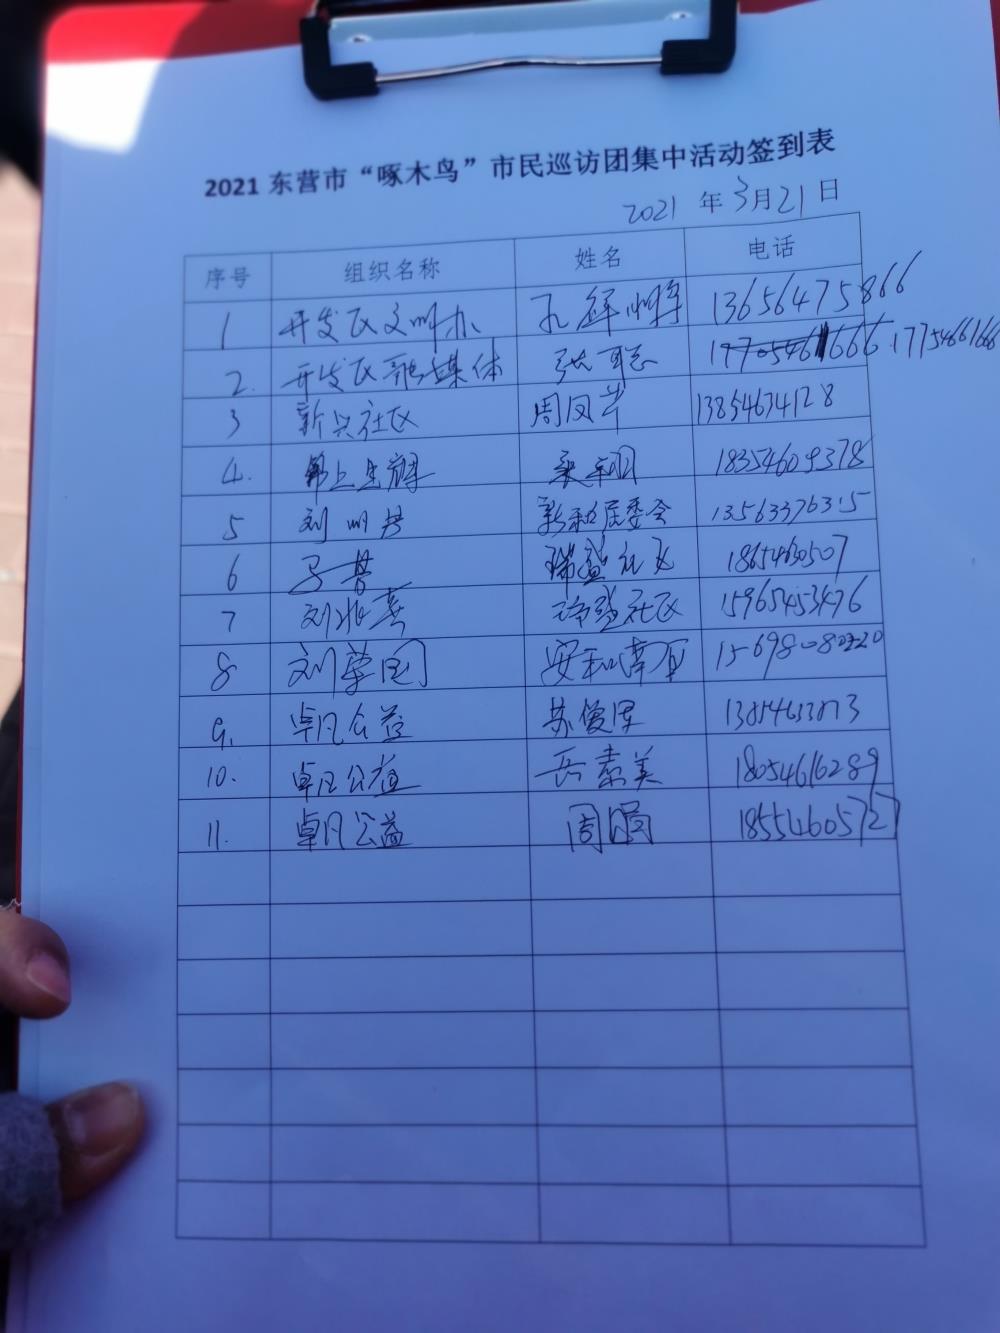 2021东营市“啄木鸟”市民巡访团集中活动签到表
2021 年 3月21日
序号 组织名称 姓名 电话
1 开发区文明办 孔祥 13656475866
2. 开发区融媒体 张聪 17754661666
3 新兴社区 周凤 13854634128
4. 18354609378
5 刘 新和居委会 13563376315
6 瑞盛社区 1865460507
7 刘 瑞盛社区 15965453476
8 刘 国 安和南
9. 卓凡公益 苏俊 
10. 卓凡公益 岳素美 18054616289
11. 卓凡公益 周娟 18554605727